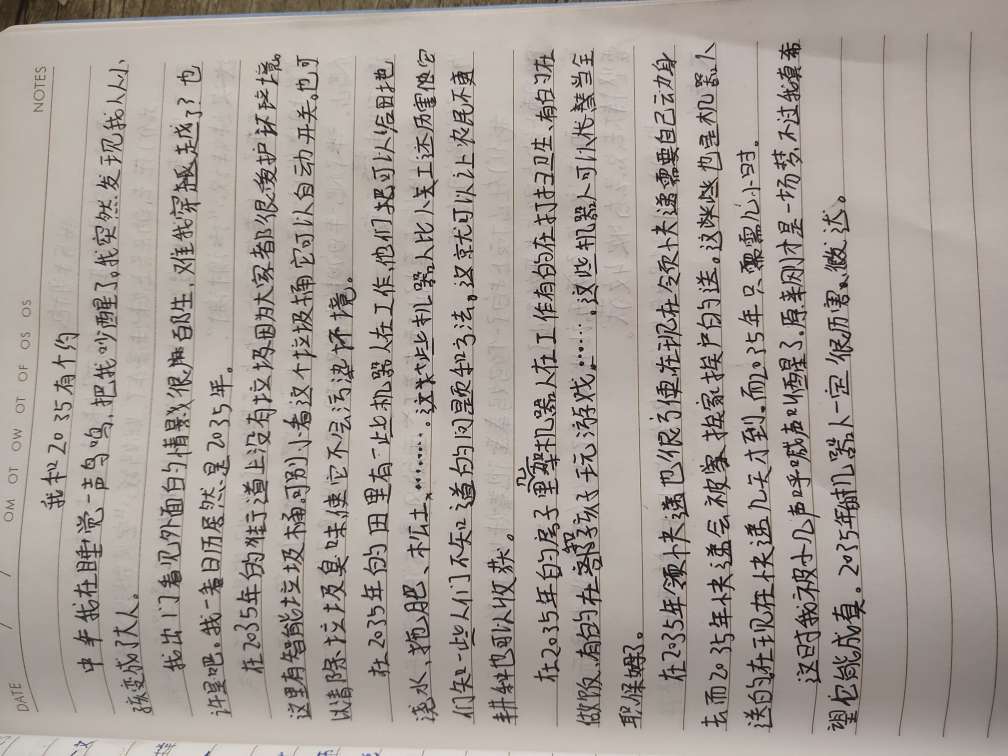 DATE / / OM OT OW OT OF OS OS NOTES
我和2035有个约
中午我在睡觉一声鸟鸣,把我吵醒了。我突然发现我从小
孩变成了大人。
我出门看见外面的情景很陌生,难我穿越了?也
许是吧。我一看日历居然是2035年。
在2035年的街道上没有垃圾因为大家都很爱护环境
这里有智能垃圾桶。可别小看这个垃圾捅它可以自动开关。也可
以清除垃圾臭味使它不会污染环境。
在2035年的田里有一些机器人在工作,他们把可以给田地
浇水、施肥、松土、……。这些机器人比人关工还厉害他它
们知一些人们不知道的的问题和方法。这京尤可以让农民不更
耕种也可以收获。
在2035年的屋子里架机器人在工作有的在打扫卫生、有的在
做饭,有的在部孩子玩游戏……。这些机器人可以代替当全
职保姆了。
在2035年领快递也很方便,在现在令领快递需要自己动身
去而2035年快递会被家挨家挨户的送。这些也是机器人
送的在现在快递几天才到,而2035年只需需几小时。
这时我被小儿声呼喊声叫醒了。原来刚才是一场梦,不过我真希
望它能成真。2035年的机器人一定很厉害、微达。